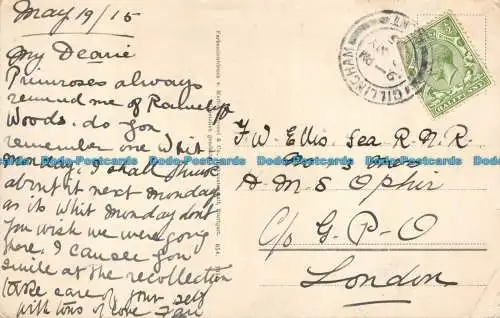 May 19/15
My Dearie
Primroses always
remind me of
Woods. do you
remember one Whit
Monday, I shall think
about it next Monday
as its Whit Monday dont
you wish we were going
there, I can see you
smile at the recollection
take care of your self
with tons of love
F. W. Ellis. Sea R.N.R.
No 3 Mess
H M S Ophir
C/o G-P-O
London
GILLINGHAM
HALFPENNY
Dodo-Postcards Dodo-Postcards Dodo-Postcards Dodo-Postcards Dodo-Postcards